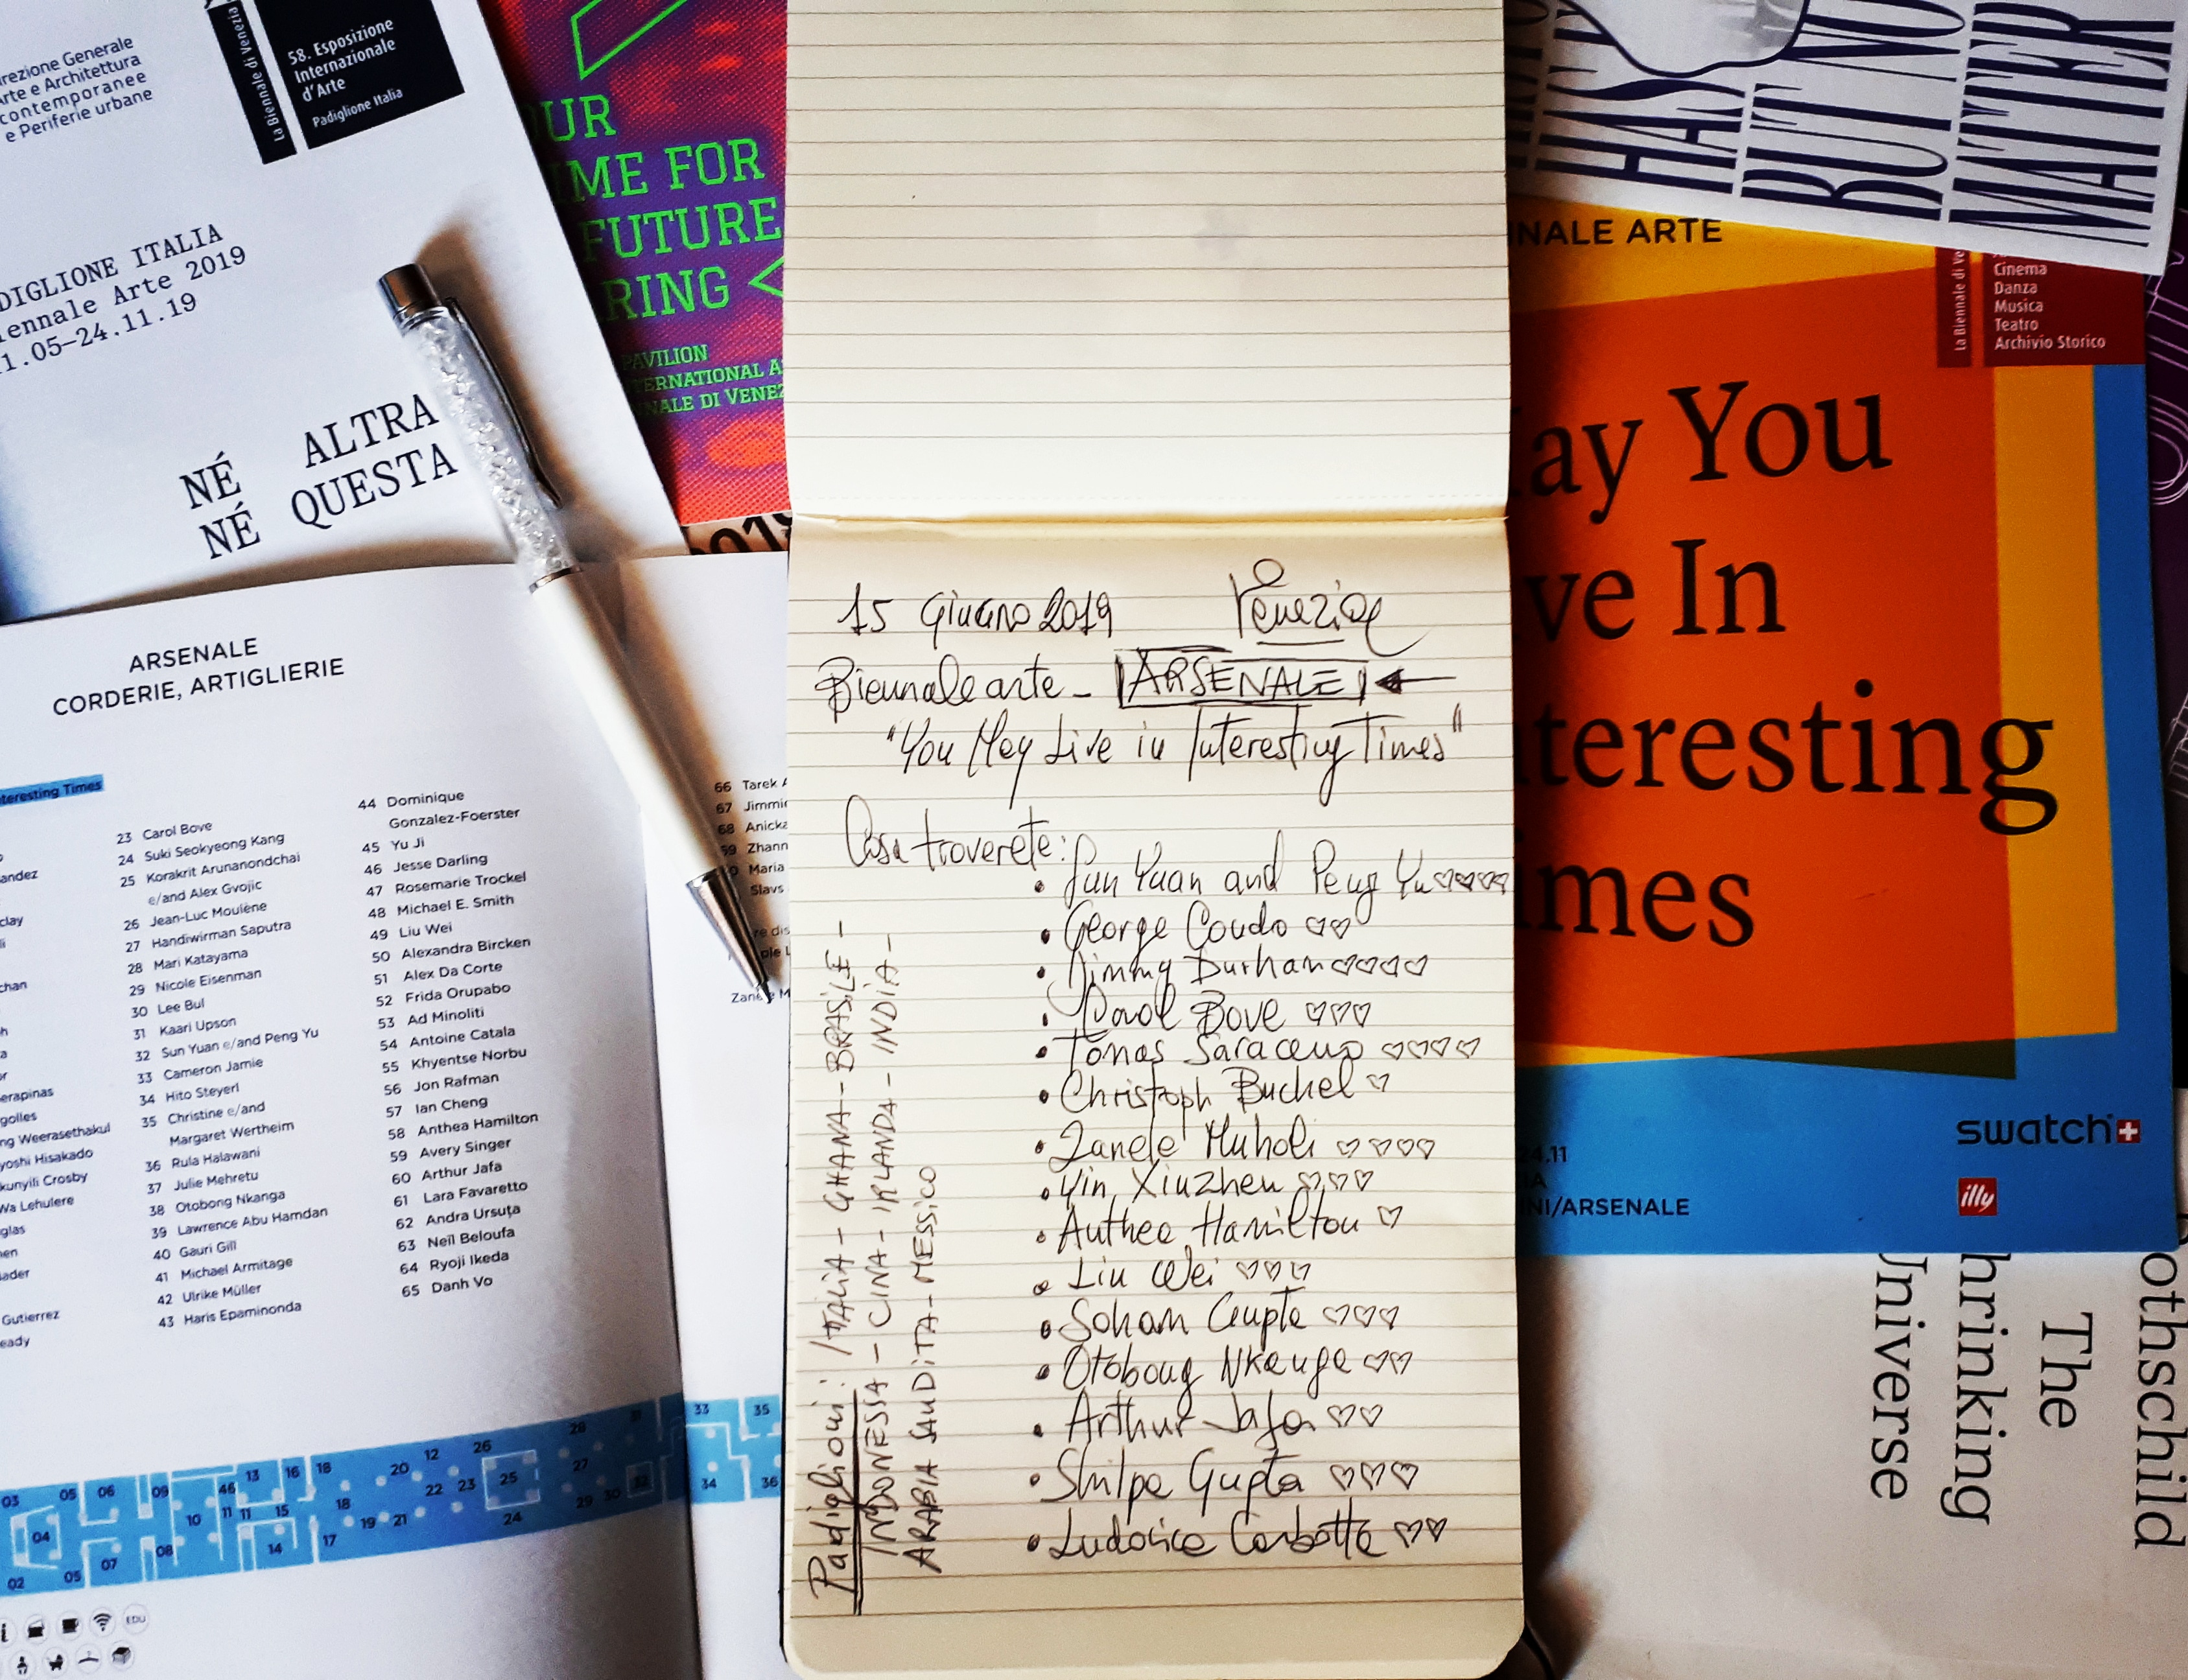 irezione Generale
Arte e Architettura
contemporanee
e Periferie urbane
La Biennale di Venezia
58. Esposizione
Internazionale
d'Arte
Padiglione Italia
DIGLIONE ITALIA
iennale Arte 2019
1.05–24.11.19
NÉ ALTRA
NÉ QUESTA
OUR
IME FOR
FUTURE
RING <
PAVILION
TERNATIONAL A
NALE DI VENEZ
2019
ARSENALE
CORDERIE, ARTIGLIERIE
teresting Times
andez
clay
chan
erapinas
golles
ng Weerasethakul
yoshi Hisakado
kunyili Crosby
Wa Lehulere
glas
nen
ader
Gutierrez
eady
23 Carol Bove
24 Suki Seokyeong Kang
25 Korakrit Arunanondchai
e/and Alex Gvojic
26 Jean-Luc Moulène
27 Handiwirman Saputra
28 Mari Katayama
29 Nicole Eisenman
30 Lee Bul
31 Kaari Upson
32 Sun Yuan e/and Peng Yu
33 Cameron Jamie
34 Hito Steyerl
35 Christine e/and
Margaret Wertheim
36 Rula Halawani
37 Julie Mehretu
38 Otobong Nkanga
39 Lawrence Abu Hamdan
40 Gauri Gill
41 Michael Armitage
42 Ulrike Müller
43 Haris Epaminonda
44 Dominique
Gonzalez-Foerster
45 Yu Ji
46 Jesse Darling
47 Rosemarie Trockel
48 Michael E. Smith
49 Liu Wei
50 Alexandra Bircken
51 Alex Da Corte
52 Frida Orupabo
53 Ad Minoliti
54 Antoine Catala
55 Khyentse Norbu
56 Jon Rafman
57 Ian Cheng
58 Anthea Hamilton
59 Avery Singer
60 Arthur Jafa
61 Lara Favaretto
62 Andra Ursuţa
63 Neïl Beloufa
64 Ryoji Ikeda
65 Danh Vo
66 Tarek A
67 Jimmie
68 Anicka
69 Zhann
Maria
Slavs
re dis
ple L
Zanele M
03 05 06 09 46 13 16 18 20 12 26 28 31 33 35
04 10 11 11 15 18 22 23 25 27 32 34 36
02 05 07 08 14 17 19 21 24 29 30
EDU
15 Giugno 2019 Venezia
Biennale arte - ARSENALE
"You May Live in Interesting Times"
Cosa troverete:
• Sun Yuan and Peng Yu ♡♡♡♡
• George Condo ♡♡
• Jimmy Durham ♡♡♡♡
• Carol Bove ♡♡♡
• Tomas Saraceno ♡♡♡♡
• Christoph Buchel ♡
• Zanele Muholi ♡♡♡♡
• Yin Xiuzhen ♡♡♡
• Anthea Hamilton ♡
• Liu Wei ♡♡♡
• Soham Gupta ♡♡♡
• Otobong Nkanga ♡♡
• Arthur Jafa ♡♡
• Shilpa Gupta ♡♡♡
• Ludovica Carbotta ♡♡
Padiglioni: ITALIA - GHANA - BRASILE -
INDONESIA - CINA - IRLANDA - INDIA -
ARABIA SAUDITA - MESSICO
HAS
BUT NO
MATTER
NNALE ARTE
La Biennale di Ve
Cinema
Danza
Musica
Teatro
Archivio Storico
May You
ve In
nteresting
imes
swatch
24.11
IA
NI/ARSENALE
illy
othschild
The
hrinking
Universe